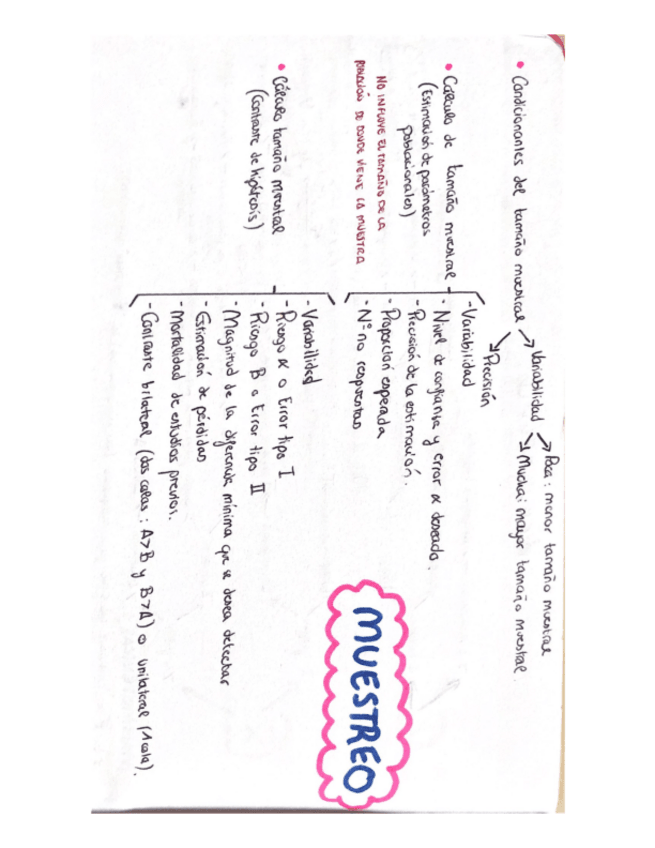 MUESTREO
• Condicionantes del tamaño muestral
→ Variabilidad
→ Poca: menor tamaño muestral
→ Mucha: mayor tamaño muestral.
→ Precisión
• Calculo de tamaño muestral
(Estimación de parámetros
poblacionales)
NO INFLUYE EL TAMAÑO DE LA
POBLACIÓN DE DONDE VIENE LA MUESTRA
- Variabilidad
- Nivel de confianza y error α deseado.
- Precisión de la estimación.
- Proporción esperada
- Nº no respuestas
• Cálculo tamaño muestral
(Contraste de hipótesis)
- Variabilidad
- Riesgo α o Error tipo I
- Riesgo B o Error tipo II
- Magnitud de la diferencia mínima que se desea detectar
- Estimación de pérdidas
- Mortalidad de estudios previos.
- Contraste bilateral (dos colas: A>B y B>A) o unilateral (1 cola).